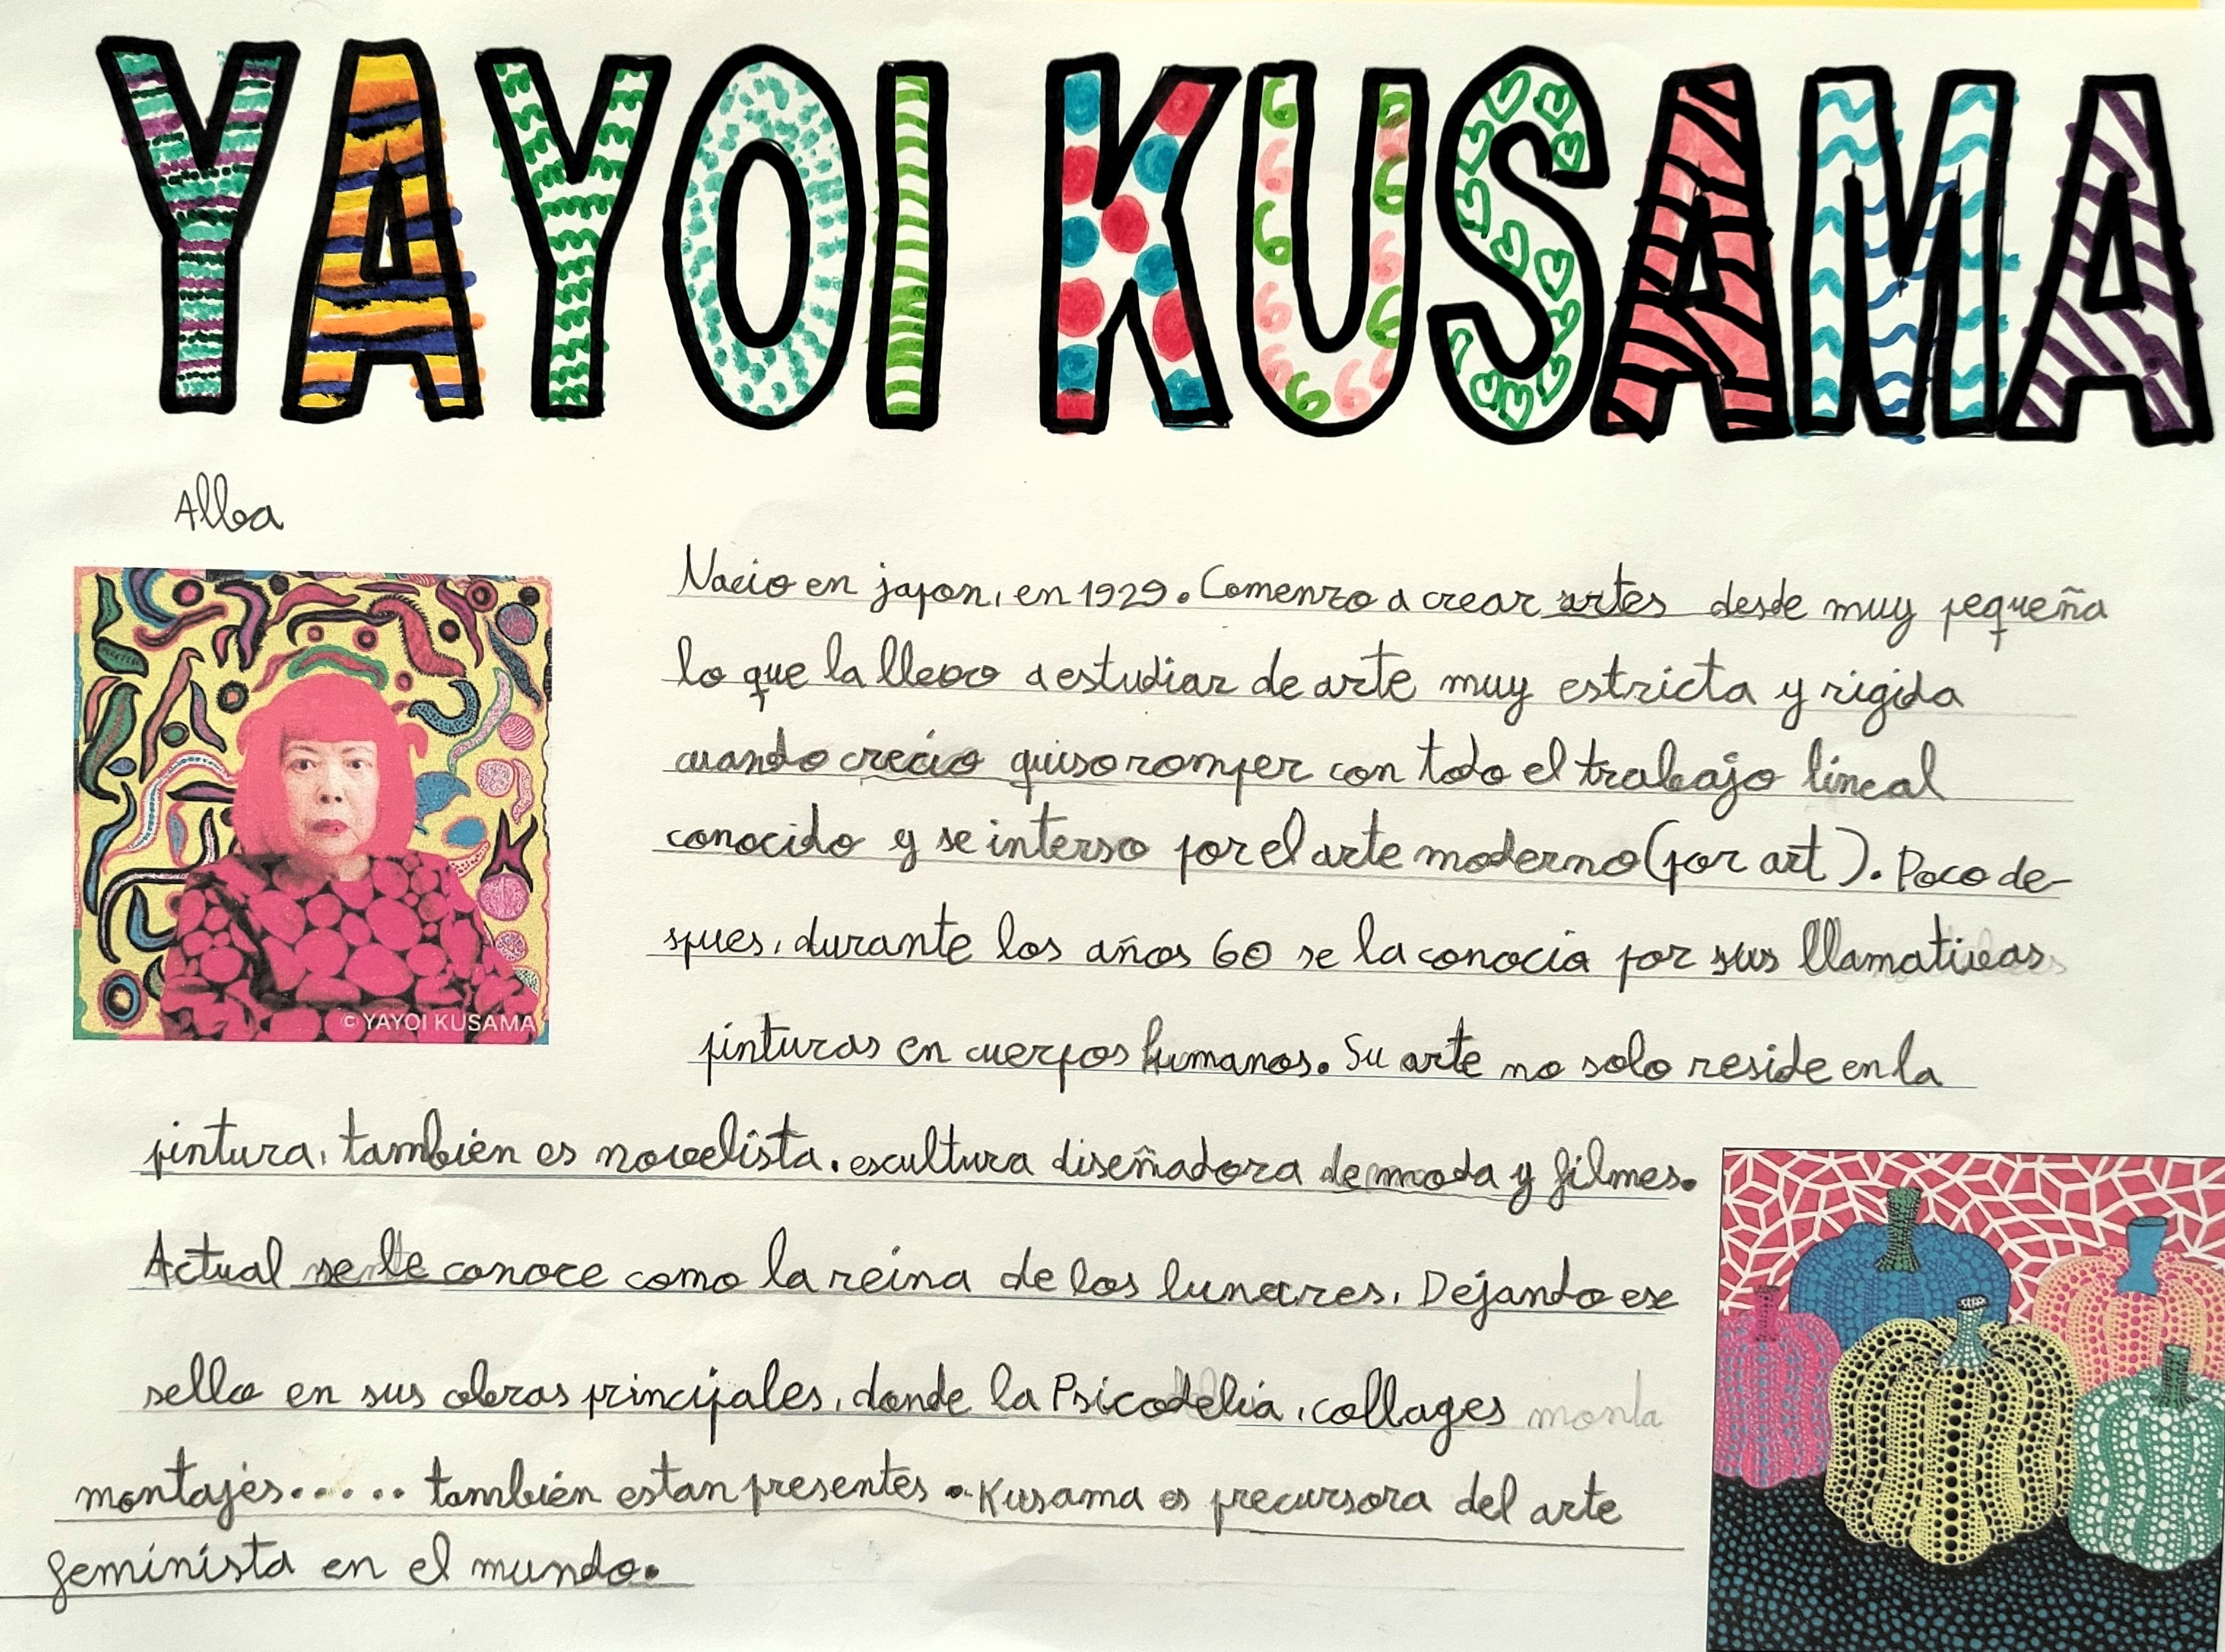 YAYOI KUSAMA
Alba
Nacio en japon, en 1929. Comenzo a crear artes desde muy pequeña
lo que la llevo a estudiar de arte muy estricta y rigida
cuando crecio quiso romper con todo el trabajo lineal
conocido y se interso por el arte moderno (por art). Poco de-
spues, durante los años 60 se la conocia por sus llamativas
© YAYOI KUSAMA
pinturas en cuerpos humanos. Su arte no solo reside en la
pintura, también es novelista. escultura diseñadora de moda y filmes.
Actual se le conoce como la reina de los lunares, Dejando ese
sello en sus obras principales, donde la Psicodelia, collages monta
montajes..... también estan presentes. Kusama es precursora del arte
feminista en el mundo.